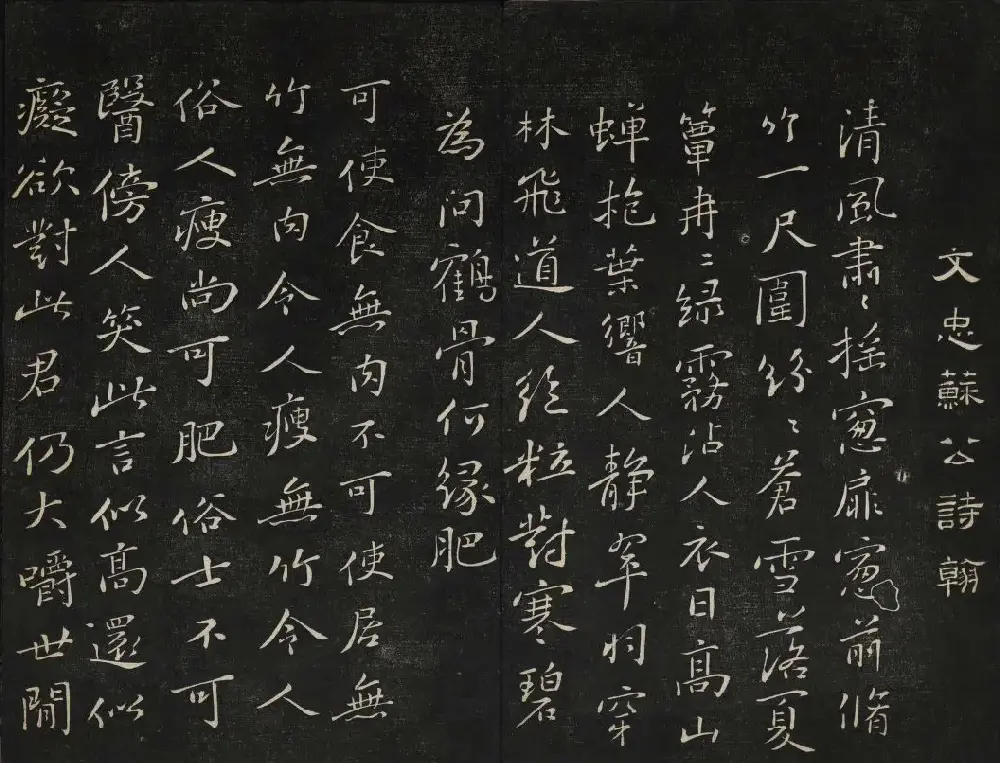 文忠蘇公詩翰
清風肅〻搖窻扉窻前脩
竹一尺圍紛〻蒼雪落夏
簟冉〻緑霧沾人衣日髙山
蝉抱葉響人静翠羽穿
林飛道人絶粒對寒碧
為問鶴骨何緣肥
可使食無肉不可使居無
竹無肉令人瘦無竹令人
俗人瘦尚可肥俗士不可
醫傍人笑此言似髙還似
癡欲對此君仍大嚼世間